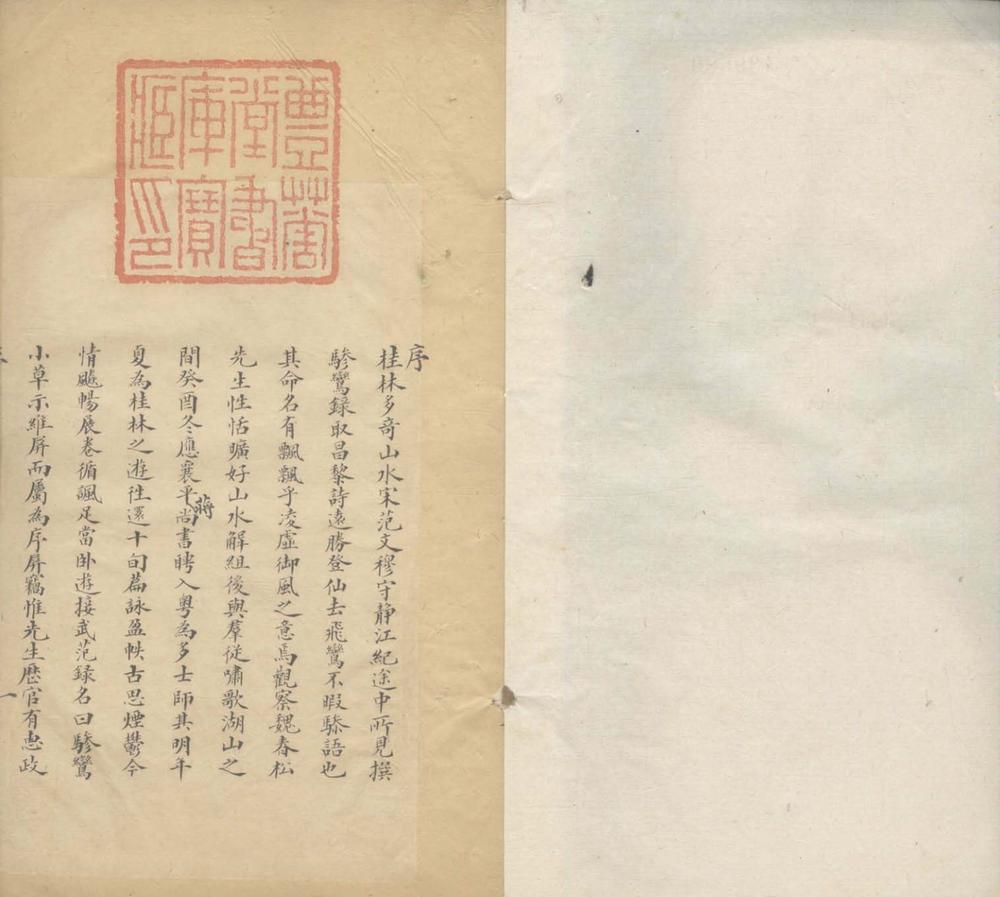 豐華堂書庫寶藏印
序
桂林多奇山水宋范文穆守静江紀途中所見撰
驂鸞録取昌黎詩遠勝登仙去飛鸞不暇驂語也
其命名有飄飄乎凌虛御風之意焉觀察魏春松
先生性恬曠好山水解組後與羣從嘯歌湖山之
間癸酉冬應襄平蔣尚書聘入粤為多士師其明年
夏為桂林之遊往還十旬篇詠盈帙古思煙鬱今
情飈暢展卷循諷足當卧遊接武范録名曰驂鸞
小草示維屏而屬為序屏竊惟先生歷官有惠政
一